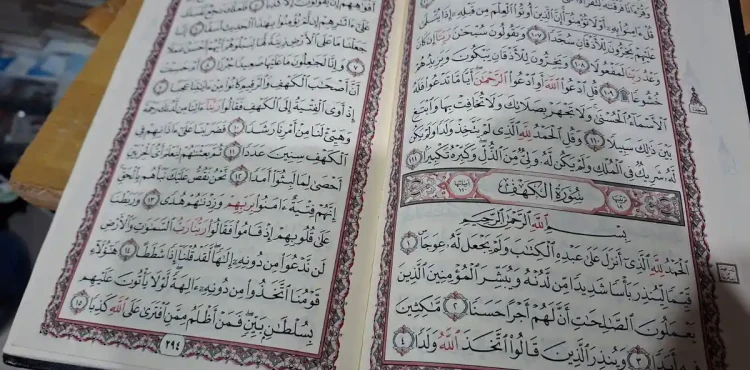 وَقُرْءَانًا فَرَقْنَٰهُ لِتَقْرَأَهُۥ
قُلْ ءَامِنُوا۟ بِهِۦٓ أَوْ لَا تُؤْمِنُوٓا۟ إِنَّ ٱلَّذِينَ أُوتُوا۟ ٱلْعِلْمَ مِن قَبْلِهِۦٓ إِذَا يُتْلَىٰ
عَلَيْهِمْ يَخِرُّونَ لِلْأَذْقَانِ سُجَّدًا ١٠٧ وَيَقُولُونَ سُبْحَٰنَ رَبِّنَآ إِن كَانَ
وَعْدُ رَبِّنَا لَمَفْعُولًا ١٠٨ وَيَخِرُّونَ لِلْأَذْقَانِ يَبْكُونَ وَيَزِيدُهُمْ
خُشُوعًا ۩ ١٠٩ قُلِ ٱدْعُوا۟ ٱللَّهَ أَوِ ٱدْعُوا۟ ٱلرَّحْمَٰنَ أَيًّا مَّا تَدْعُوا۟ فَلَهُ
ٱلْأَسْمَآءُ ٱلْحُسْنَىٰ وَلَا تَجْهَرْ بِصَلَاتِكَ وَلَا تُخَافِتْ بِهَا وَٱبْتَغِ
بَيْنَ ذَٰلِكَ سَبِيلًا ١١٠ وَقُلِ ٱلْحَمْدُ لِلَّهِ ٱلَّذِى لَمْ يَتَّخِذْ وَلَدًا وَلَمْ يَكُن
لَّهُۥ شَرِيكٌ فِى ٱلْمُلْكِ وَلَمْ يَكُن لَّهُۥ وَلِىٌّ مِّنَ ٱلذُّلِّ وَكَبِّرْهُ تَكْبِيرًۢا ١١١
سُورَةُ الكَهْفِ
آياتها ١١٠
بِسْمِ ٱللَّهِ ٱلرَّحْمَٰنِ ٱلرَّحِيمِ
ٱلْحَمْدُ لِلَّهِ ٱلَّذِىٓ أَنزَلَ عَلَىٰ عَبْدِهِ ٱلْكِتَٰبَ وَلَمْ يَجْعَل لَّهُۥ عِوَجَاۜ ١
قَيِّمًا لِّيُنذِرَ بَأْسًا شَدِيدًا مِّن لَّدُنْهُ وَيُبَشِّرَ ٱلْمُؤْمِنِينَ ٱلَّذِينَ
يَعْمَلُونَ ٱلصَّٰلِحَٰتِ أَنَّ لَهُمْ أَجْرًا حَسَنًا ٢ مَّٰكِثِينَ
فِيهِ أَبَدًا ٣ وَيُنذِرَ ٱلَّذِينَ قَالُوا۟ ٱتَّخَذَ ٱللَّهُ وَلَدًا ٤
أَفْوَٰهِهِمْ إِن يَقُولُونَ إِلَّا كَذِبًا ٥
عَلَىٰٓ ءَاثَٰرِهِمْ إِن لَّمْ يُؤْمِنُوا۟ بِهَٰذَا ٱلْحَدِيثِ أَسَفًا ٦
جَعَلْنَا مَا عَلَى ٱلْأَرْضِ زِينَةً لَّهَا لِنَبْلُوَهُمْ أَيُّهُمْ أَحْسَنُ عَمَلًا
٧ وَإِنَّا لَجَٰعِلُونَ مَا عَلَيْهَا صَعِيدًا جُرُزًا ٨ أَمْ حَسِبْتَ
أَنَّ أَصْحَٰبَ ٱلْكَهْفِ وَٱلرَّقِيمِ كَانُوا۟ مِنْ ءَايَٰتِنَا عَجَبًا ٩
إِذْ أَوَى ٱلْفِتْيَةُ إِلَى ٱلْكَهْفِ فَقَالُوا۟ رَبَّنَآ ءَاتِنَا مِن لَّدُنكَ رَحْمَةً
وَهَيِّئْ لَنَا مِنْ أَمْرِنَا رَشَدًا ١٠ فَضَرَبْنَا عَلَىٰٓ ءَاذَانِهِمْ فِى
ٱلْكَهْفِ سِنِينَ عَدَدًا ١١ ثُمَّ بَعَثْنَٰهُمْ لِنَعْلَمَ أَىُّ ٱلْحِزْبَيْنِ
أَحْصَىٰ لِمَا لَبِثُوٓا۟ أَمَدًا ١٢ نَّحْنُ نَقُصُّ عَلَيْكَ نَبَأَهُم بِٱلْحَقِّ
إِنَّهُمْ فِتْيَةٌ ءَامَنُوا۟ بِرَبِّهِمْ وَزِدْنَٰهُمْ هُدًى ١٣ وَرَبَطْنَا
عَلَىٰ قُلُوبِهِمْ إِذْ قَامُوا۟ فَقَالُوا۟ رَبُّنَا رَبُّ ٱلسَّمَٰوَٰتِ وَٱلْأَرْضِ
لَن نَّدْعُوَا۟ مِن دُونِهِۦٓ إِلَٰهًا لَّقَدْ قُلْنَآ إِذًا شَطَطًا ١٤ هَٰٓؤُلَآءِ
قَوْمُنَا ٱتَّخَذُوا۟ مِن دُونِهِۦٓ ءَالِهَةً لَّوْلَا يَأْتُونَ عَلَيْهِم
بِسُلْطَٰنٍۭ بَيِّنٍ فَمَنْ أَظْلَمُ مِمَّنِ ٱفْتَرَىٰ عَلَى ٱللَّهِ كَذِبًا ١٥
٢٩٤